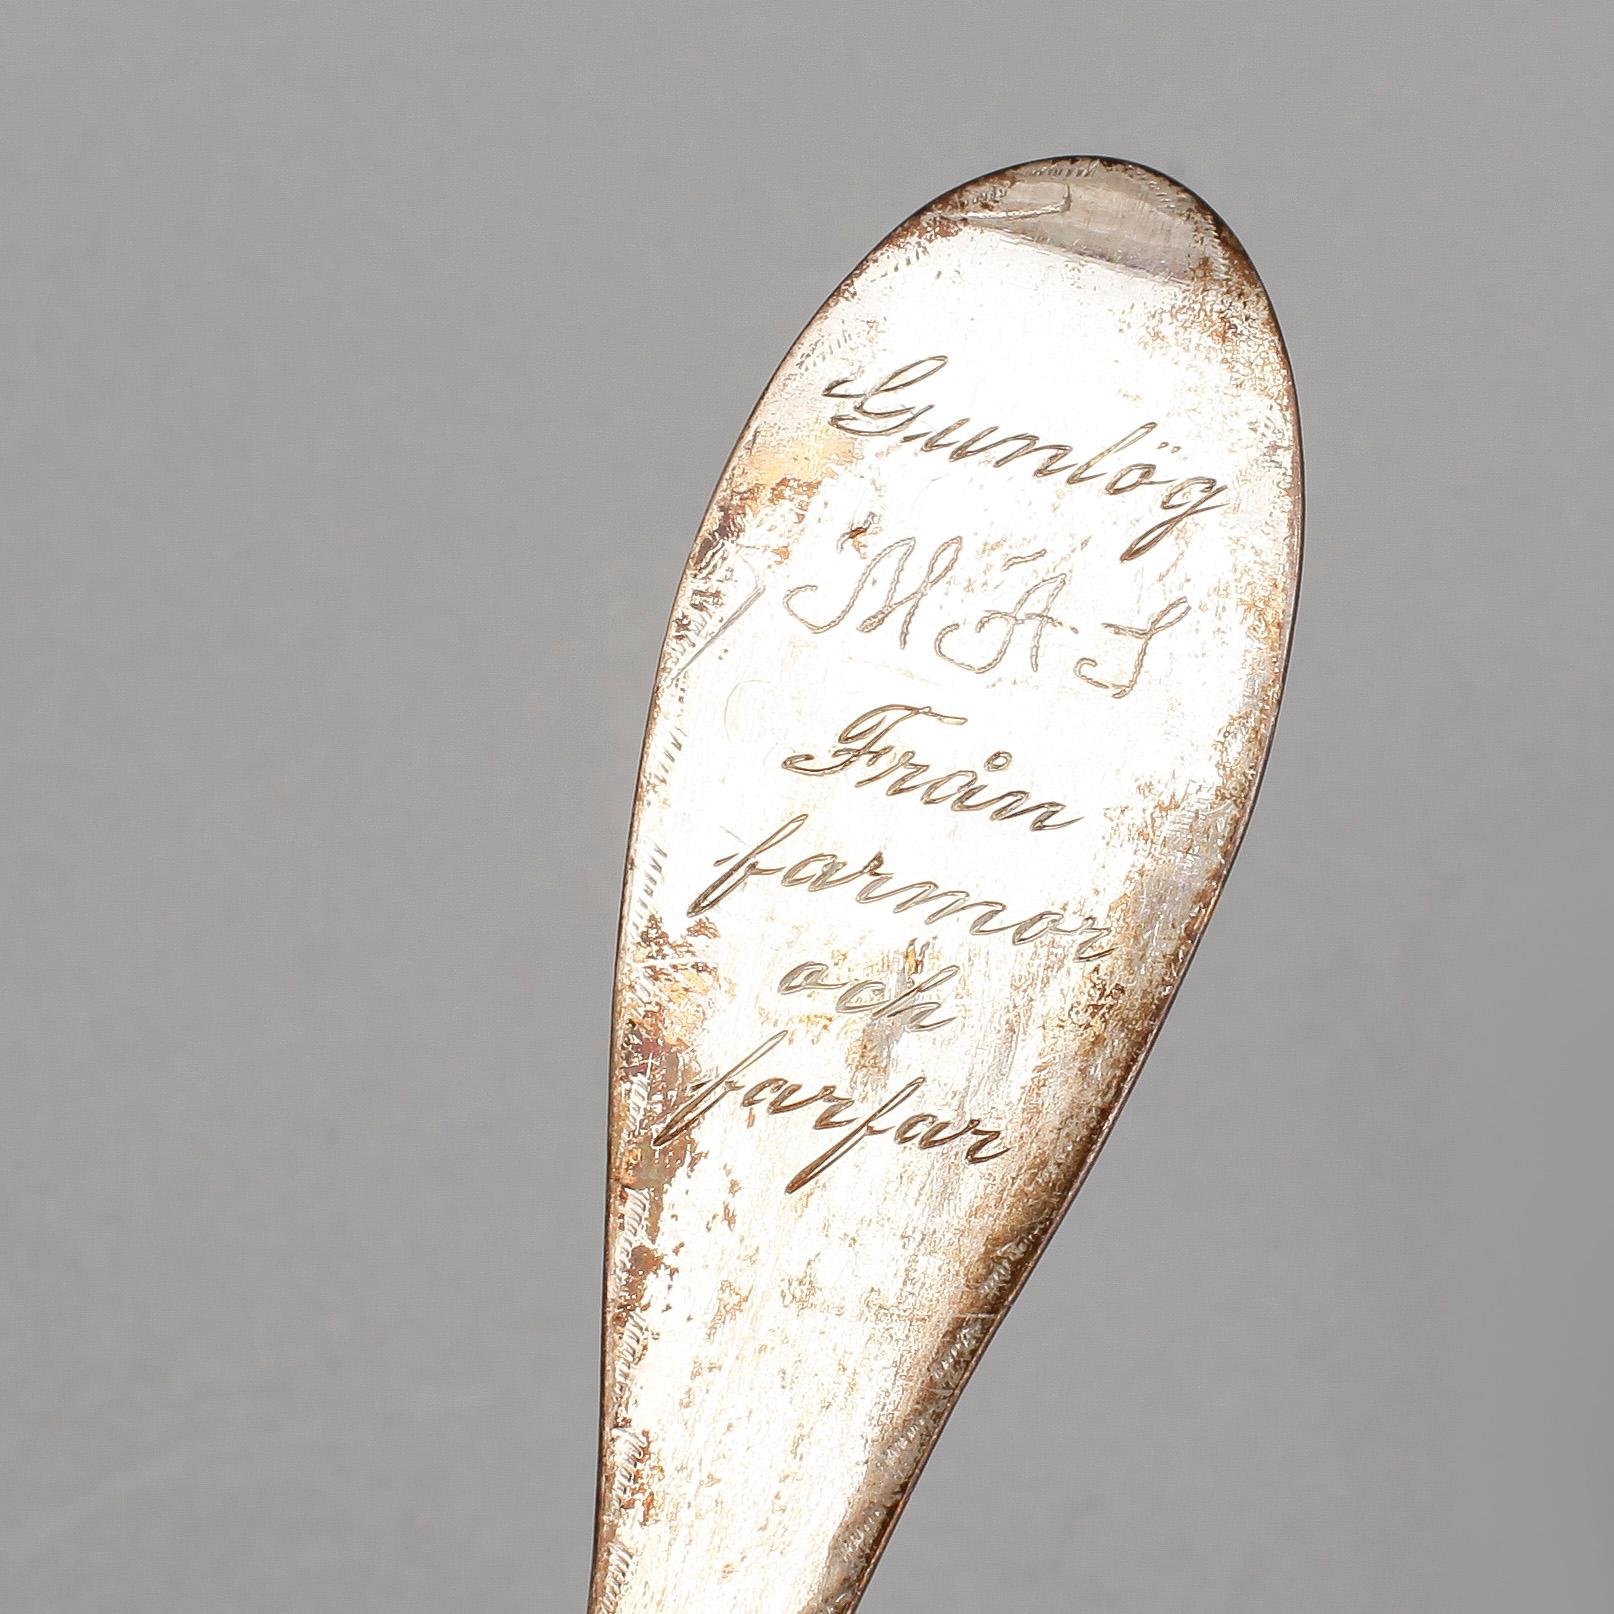 Gunlög
M A S
Från
farmor
och
farfar